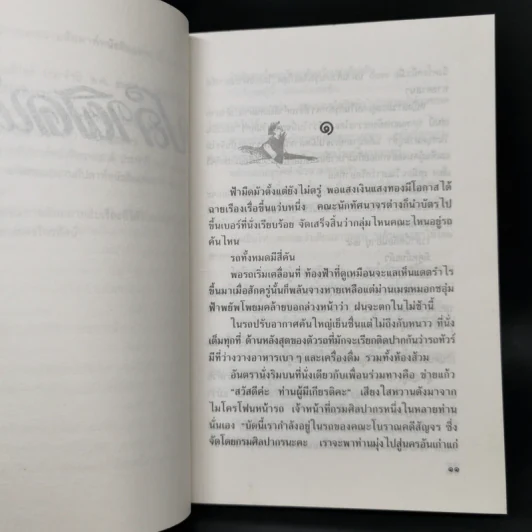 ๑
ฟ้ามืดมัวตั้งแต่ยังไม่ตรู่ พอแสงเงินแสงทองมีโอกาสได้
ฉายเรืองเรื่อขึ้นแวบหนึ่ง คณะนักทัศนาจรต่างก็นำบัตรไป
ขึ้นเบอร์ที่นั่งเรียบร้อย จัดเสร็จสิ้นว่ากลุ่มไหนคณะไหนอยู่รถ
คันไหน
รถทั้งหมดมีสี่คัน
พอรถเริ่มเคลื่อนที่ ท้องฟ้าที่ดูเหมือนจะแลเห็นแดดรำไร
ขึ้นมาเมื่อสักครู่นั้นก็พลันจางหายเหลือแต่ม่านเมฆหมอกชอุ่ม
ฟ้าพยับโพยมคล้ายบอกล่วงหน้าว่า ฝนจะตกในไม่ช้านี้
ในรถปรับอากาศคันใหญ่เย็นชื่นแต่ไม่ถึงกับหนาว ที่นั่ง
เต็มทุกที่ ด้านหลังสุดของตัวรถที่มักจะเรียกติดปากกันว่ารถทัวร์
มีที่ว่างวางอาหารเบา ๆ และเครื่องดื่ม รวมทั้งห้องส้วม
อันตรานั่งริมบนที่นั่งเดียวกับเพื่อนร่วมทางคือ ช่ายแก้ว
“สวัสดีค่ะ ท่านผู้มีเกียรติคะ” เสียงใสหวานดังมาจาก
ไมโครโฟนหน้ารถ เจ้าหน้าที่กรมศิลปากรหนึ่งในหลายท่าน
นั่นเอง “บัดนี้เรากำลังอยู่ในรถของคณะโบราณคดีสัญจร ซึ่ง
จัดโดยกรมศิลปากรนะคะ เราจะพาท่านมุ่งไปสู่นครอันเก่าแก่
๑๑